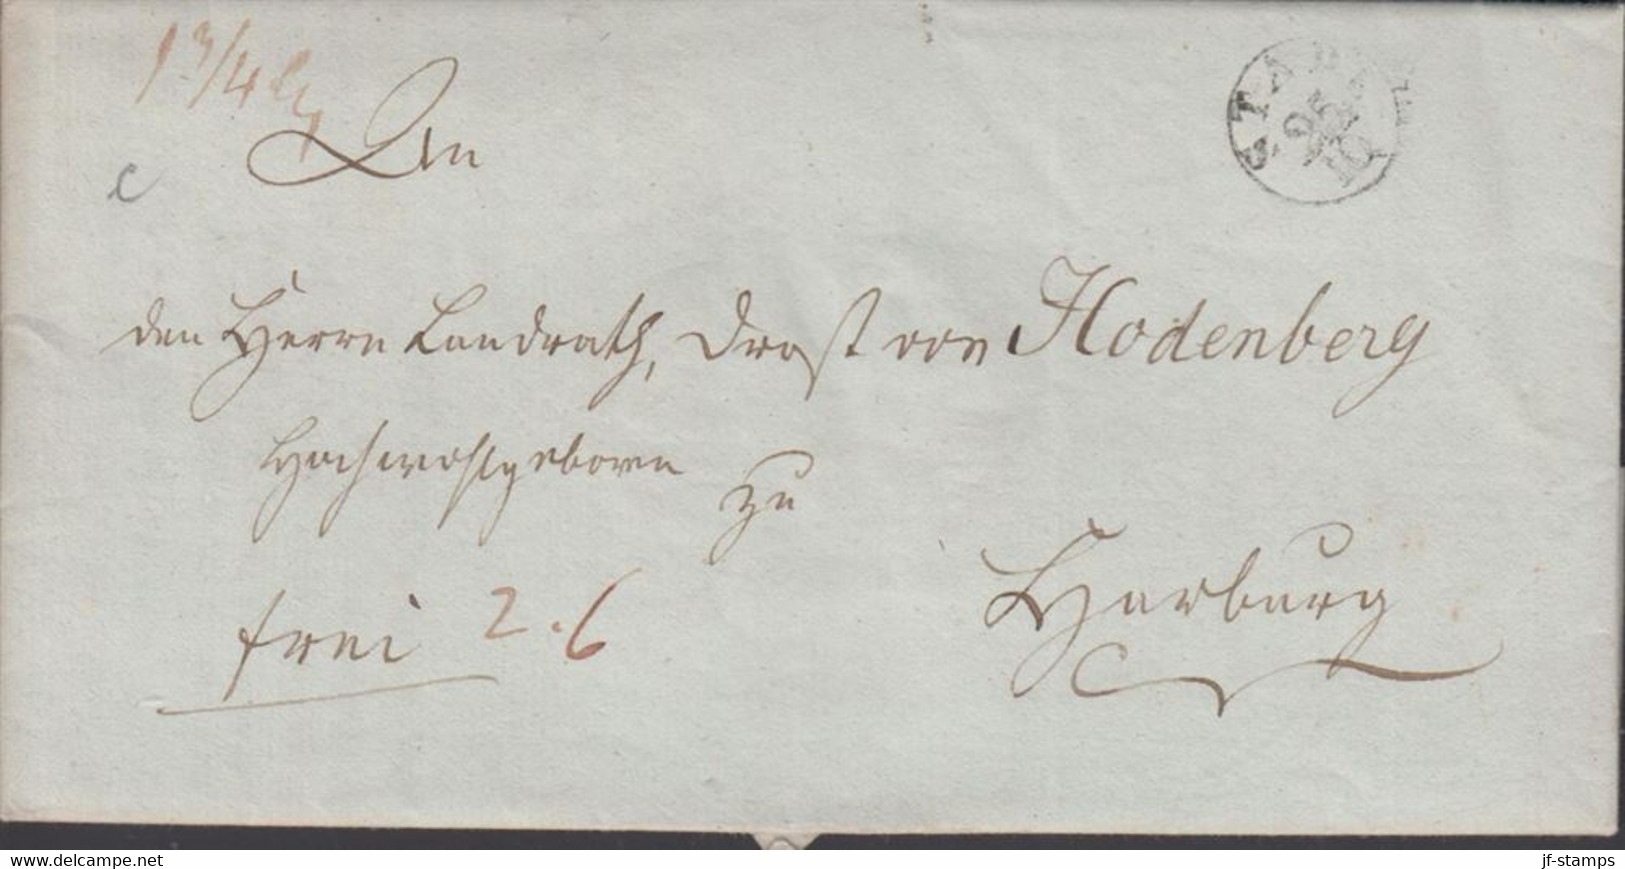 1 3/4
STADE
25
10
An
c
den Herrn Landrath, Drost von Hodenberg
Hochwohlgeboren
zu
Harburg
frei 2.6
www.delcampe.net
jf-stamps